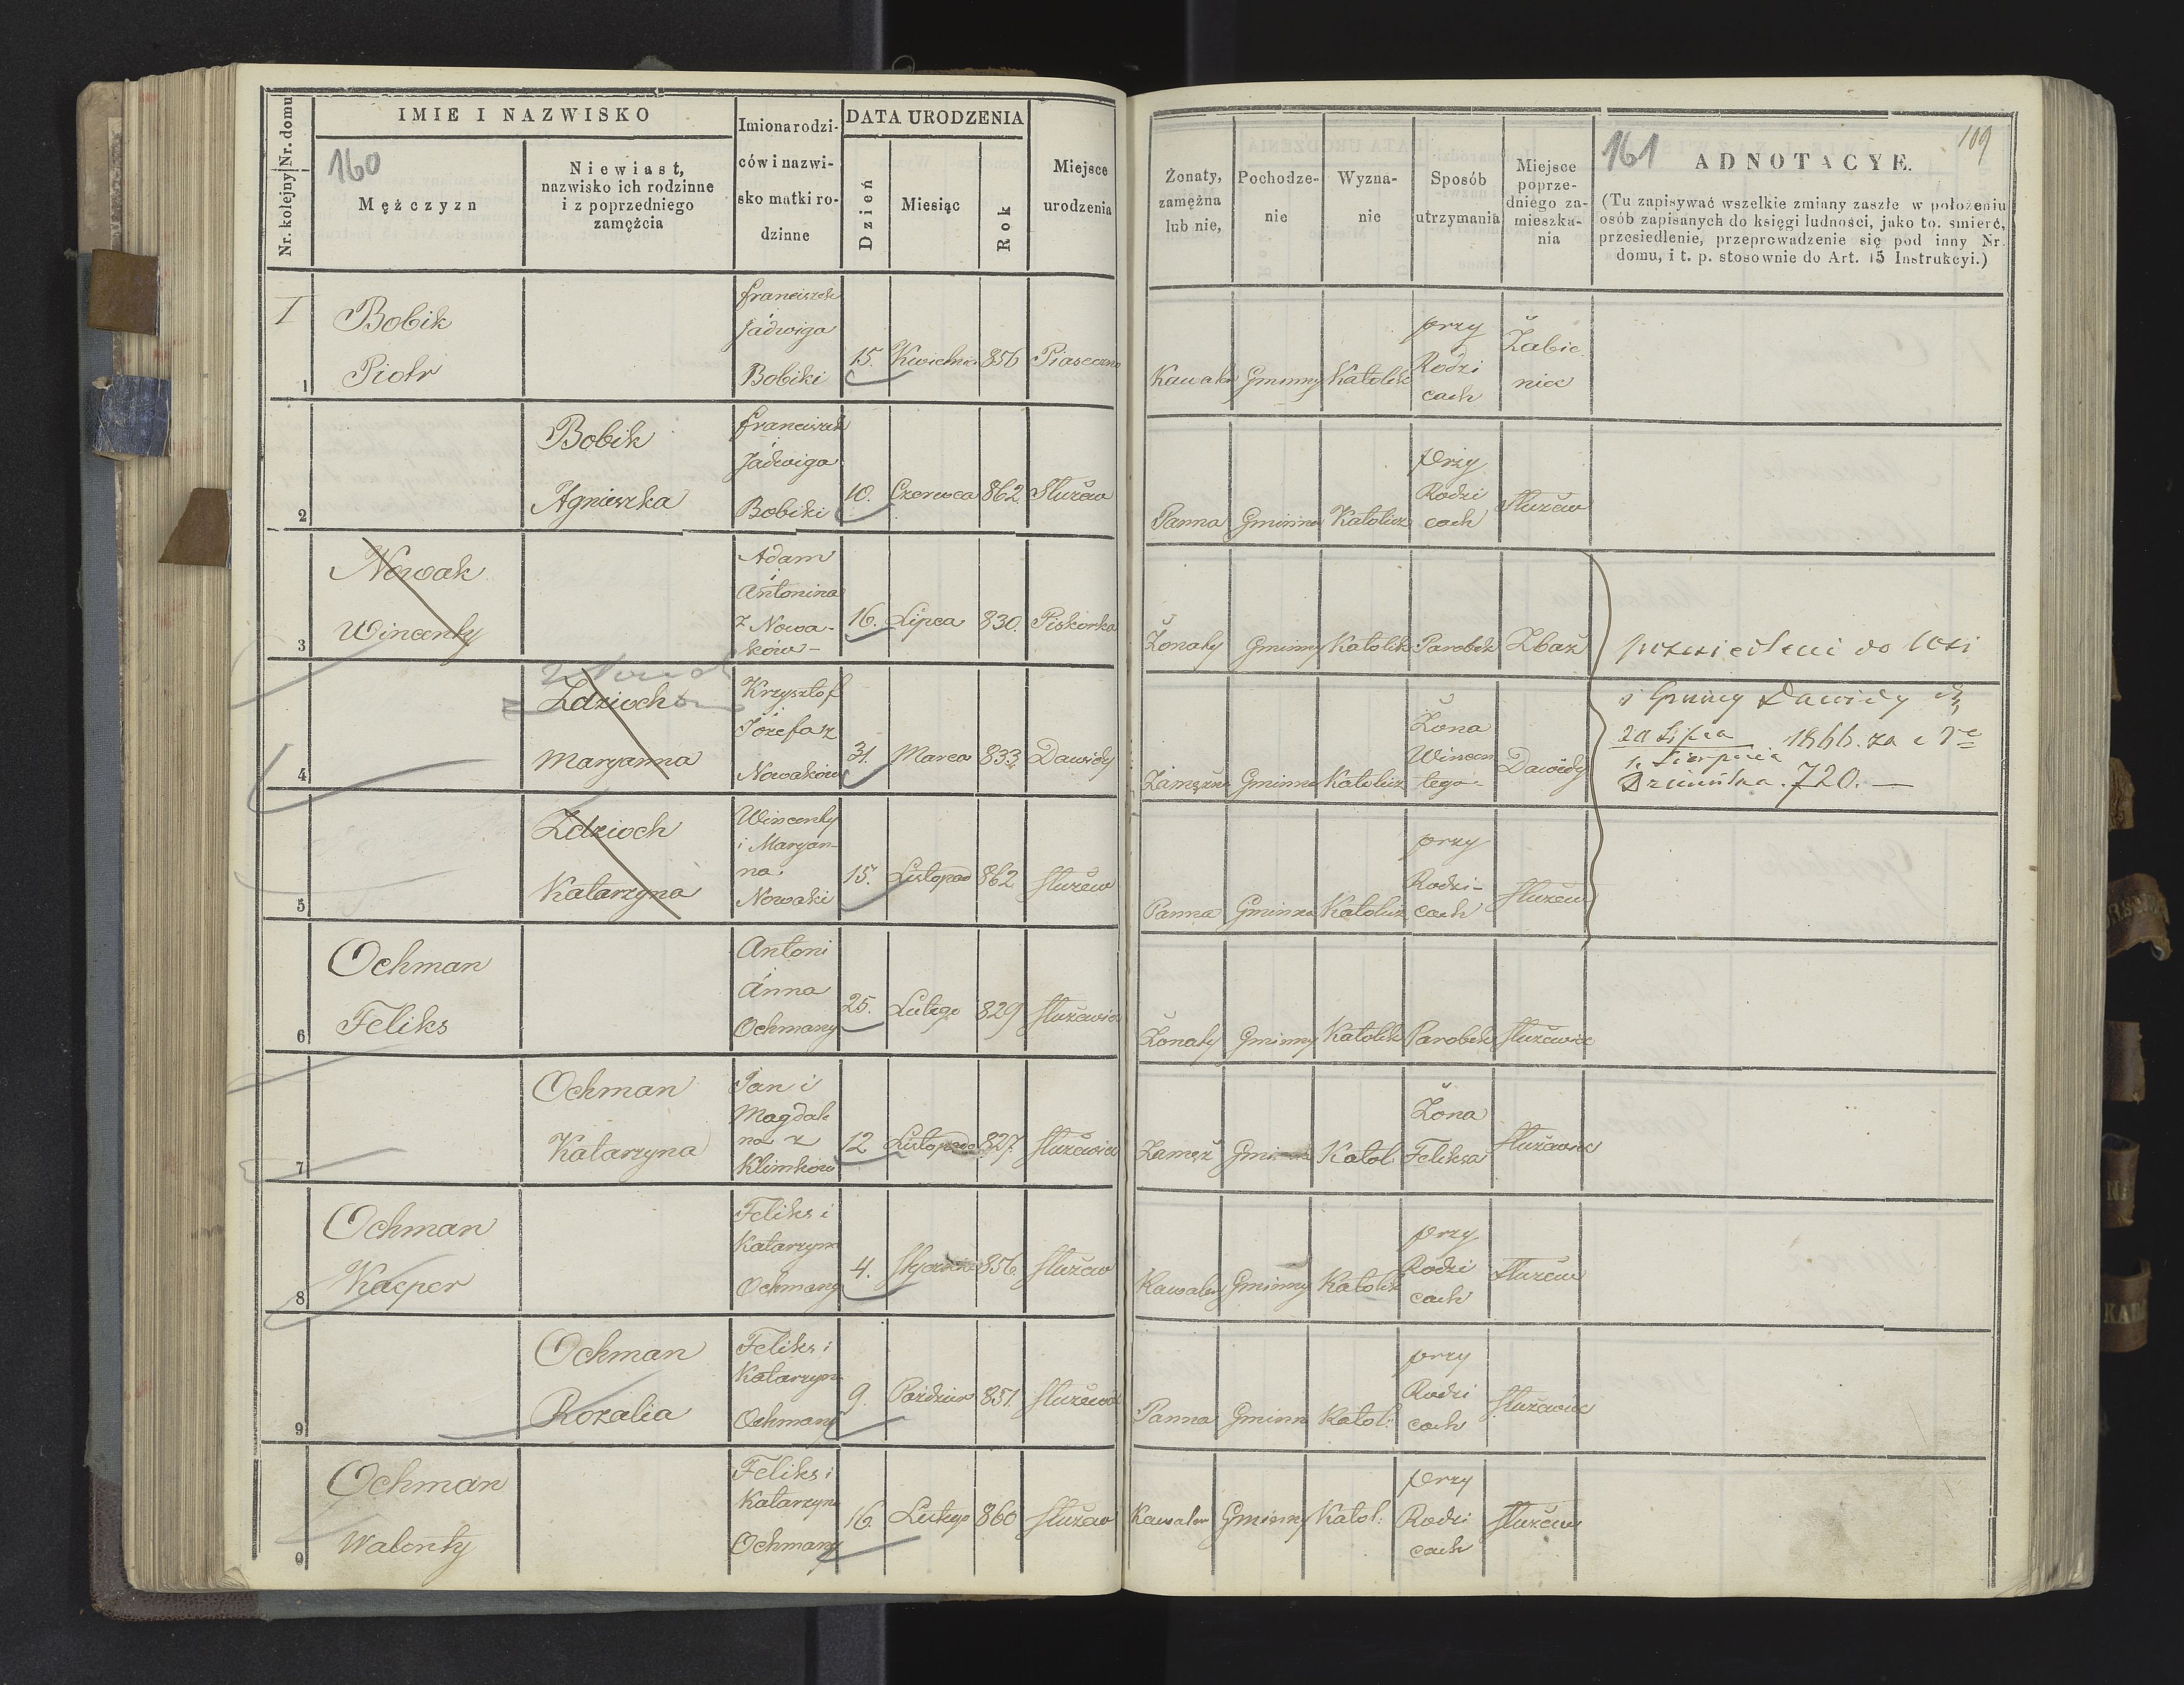 Nr. kolejny Nr. domu
IMIE I NAZWISKO
160
Mężczyzn
Niewiast,
nazwisko ich rodzinne
i z poprzedniego
zamężcia
Imiona rodzi-
ców i nazwi-
sko matki ro-
dzinne
DATA URODZENIA
Dzień
Miesiąc
Rok
Miejsce
urodzenia
Żonaty,
zamężna
lub nie,
Pochodze-
nie
Wyzna-
nie
Sposób
utrzymania
Miejsce
poprze-
dniego za-
mieszka-
nia
161
109
ADNOTACYE.
(Tu zapisywać wszelkie zmiany zaszłe w położeniu
osób zapisanych do księgi ludności, jako to. śmierć,
przesiedlenie, przeprowadzenie się pod inny Nr.
domu, i t. p. stosownie do Art. 15 Instrukcyi.)
I
1
Bobik
Piotr
Franciszek
i Jadwiga
Bobiki
15. Kwietnia 856 Piaseczno
Kawaler Gminny Katolik
przy
Rodzi
cach
Żabie
niec
2
Bobik
Agnieszka
Franciszek
i Jadwiga
Bobiki
10. Czerwca 862 Służew
Panna Gminna Katolicz
Przy
Rodzi
cach
Służew
3
Nowak
Wincenty
Adam
i Antonina
z Nowa-
ków -
16. Lipca 830. Piskorka
Żonaty Gminny Katolik Parobek Zbaż
przesiedleni do Wsi
4
Zdzioch
Maryanna
Krzysztof
i Józefa z
Nowaków
31. Marca 833 Dawidy
Zamężna Gminna Katolicz
Żona
Wincen
tego -
Dawidy
i Gminy Dawidy
20 Lipca
1. Sierpnia
1866. za
Dziennika. 720. —
5
Zdzioch
Katarzyna
Wincenty
i Maryan-
na
Nowaki
15. Listopad 862 Służew
Panna Gminna Katolicz
przy
Rodzi-
cach
Służew
6
Ochman
Feliks
Antoni
i Anna
Ochmany
25. Lutego 829 Służewiec
Żonaty Gminny Katolik Parobek Służewiec
7
Ochman
Katarzyna
Jan i
Magdale
na z
Klimków
12 Listopada 827. Służewiec
Zamęż Katol
Żona
Feliksa
Służewiec
8
Ochman
Kacper
Feliks i
Katarzyna
Ochmany
4. Stycznia 856 Służew
Kawaler Gminny Katolik
przy
Rodzi
cach
Służew
9
Ochman
Rozalia
Feliks i
Katarzyna
Ochmany
9. Paździer 851. Służewiec
Panna Gminn Katol:
przy
Rodzi
cach
Służewiec
0
Ochman
Walenty
Feliks i
Katarzyna
Ochmany
16. Lutego 860 Służew
Kawaler Gminny Katol:
przy
Rodzi
cach
Służew